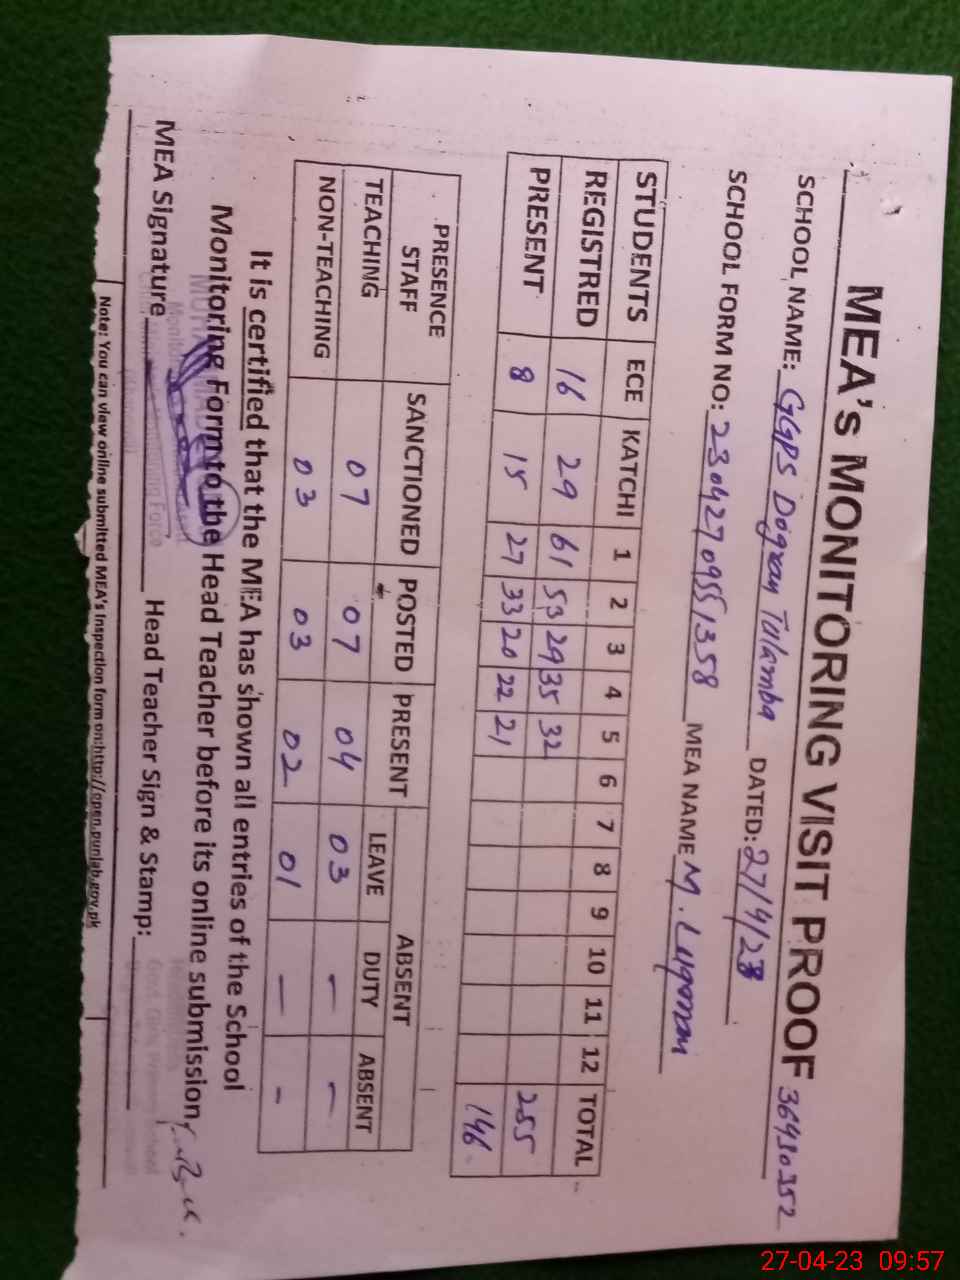 MEA's MONITORING VISIT PROOF
SCHOOL NAME: GGPS Dogran Tulamba DATED: 27/4/23
SCHOOL FORM NO: 23042709551358 MEA NAME M. Luqman
STUDENTS ECE KATCHI 1 2 3 4 5 6 7 8 9 10 11 12 TOTAL
REGISTRED 16 29 61 53 29 35 32 255
PRESENT 8 15 27 33 20 22 21 146
PRESENCE STAFF SANCTIONED POSTED PRESENT ABSENT
LEAVE DUTY ABSENT
TEACHING 07 07 04 03 — —
NON-TEACHING 03 03 02 01 — -
It is certified that the MEA has shown all entries of the School
Monitoring Form to the Head Teacher before its online submission
MEA Signature Head Teacher Sign & Stamp:
Note: You can view online submitted MEA's Inspection form on:http://open.punjab.gov.pk
27-04-23 09:57